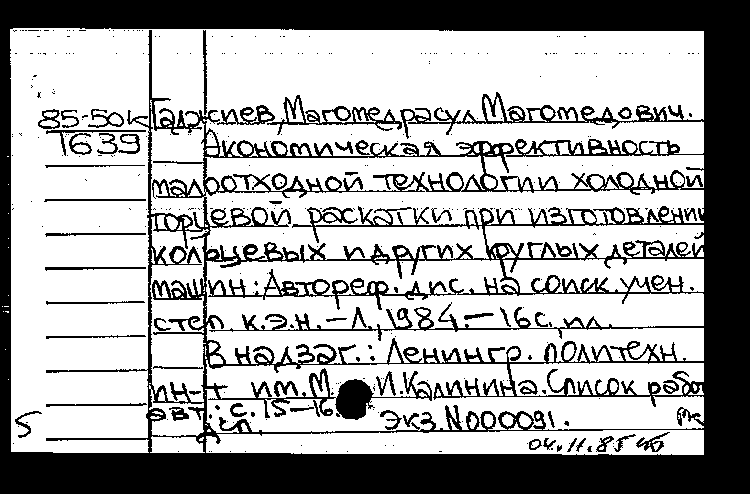 85-50К Гаджиев, Магомедрасул Магомедович.
1639 Экономическая эффективность
малоотходной технологии холодной
торцевой раскатки при изготовлении
кольцевых и других круглых деталей
машин: Автореф. дис. на соиск. учен.
степ. к.э.н. - Л., 1984. - 16 с., ил.
В надзаг.: Ленингр. политехн.
ин-т им. М. И. Калинина. Список работ
авт.: с. 15-16.
5 ДСП. Экз. N000091.
04.11.85